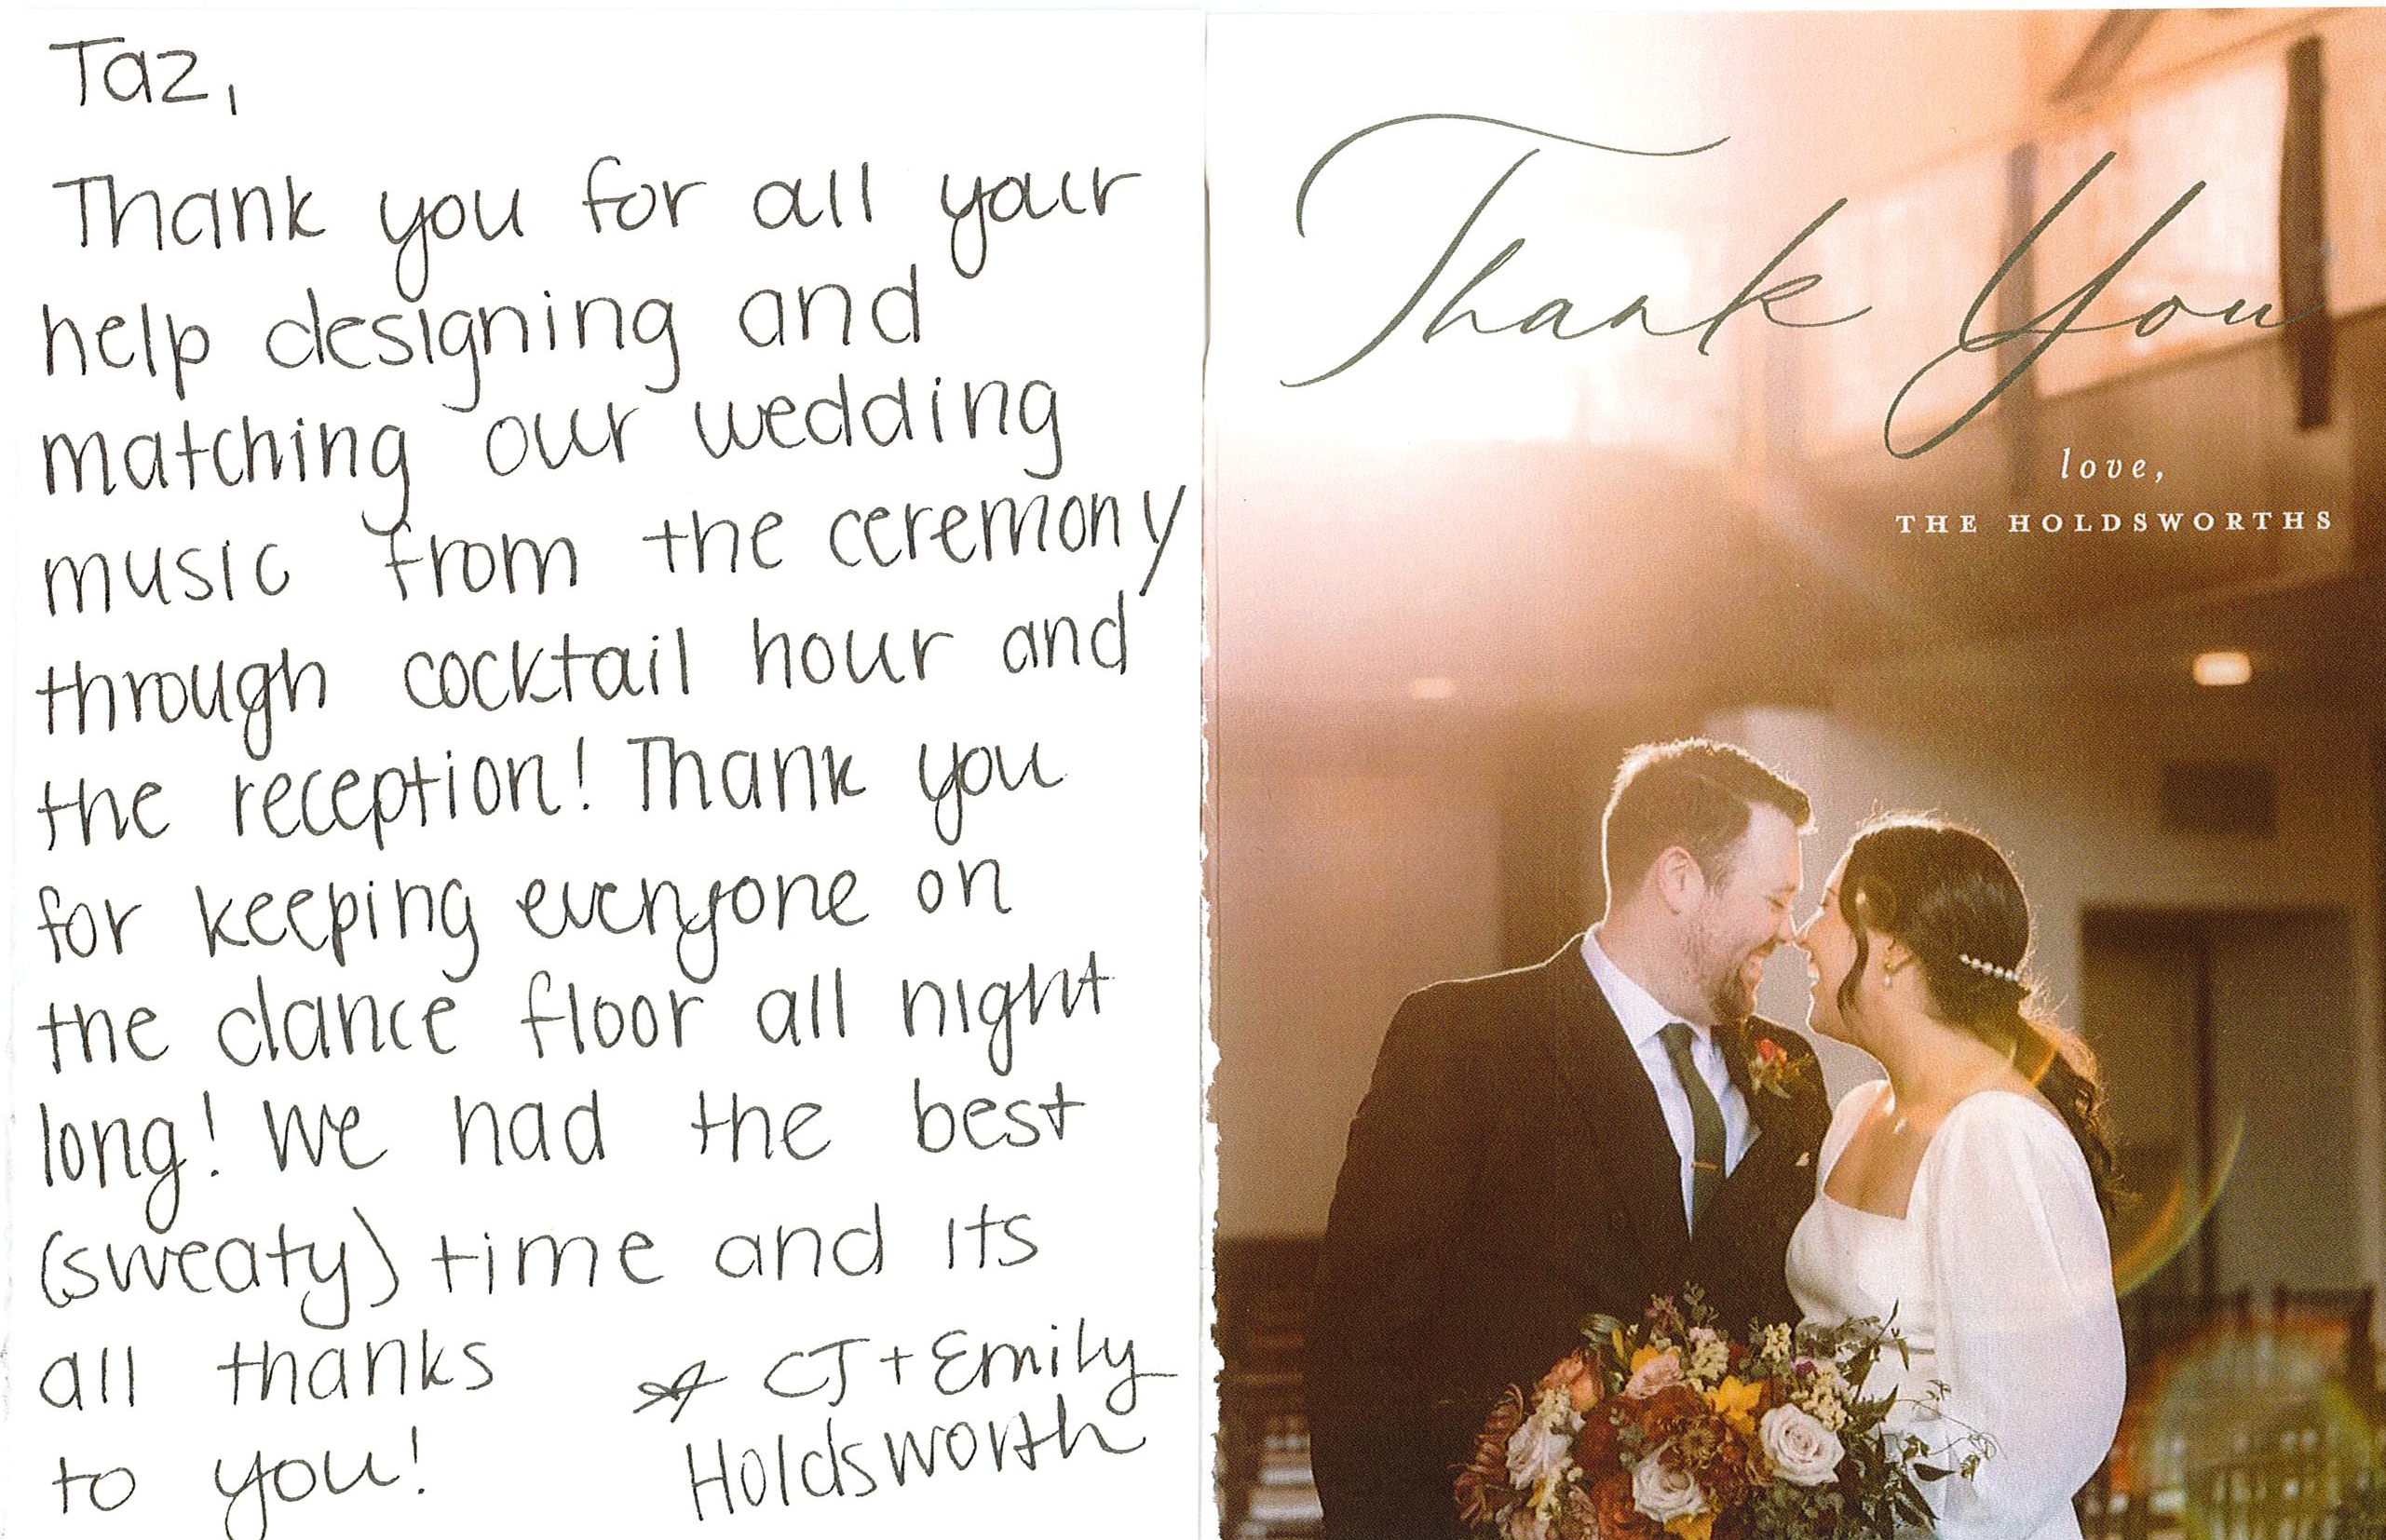 Taz,
Thank you for all your
help designing and
matching our wedding
music from the ceremony
through cocktail hour and
the reception! Thank you
for keeping everyone on
the dance floor all night
long! We had the best
(sweaty) time and its
all thanks
to you!
CJ + Emily
Holdsworth
Thank You
love,
THE HOLDSWORTHS